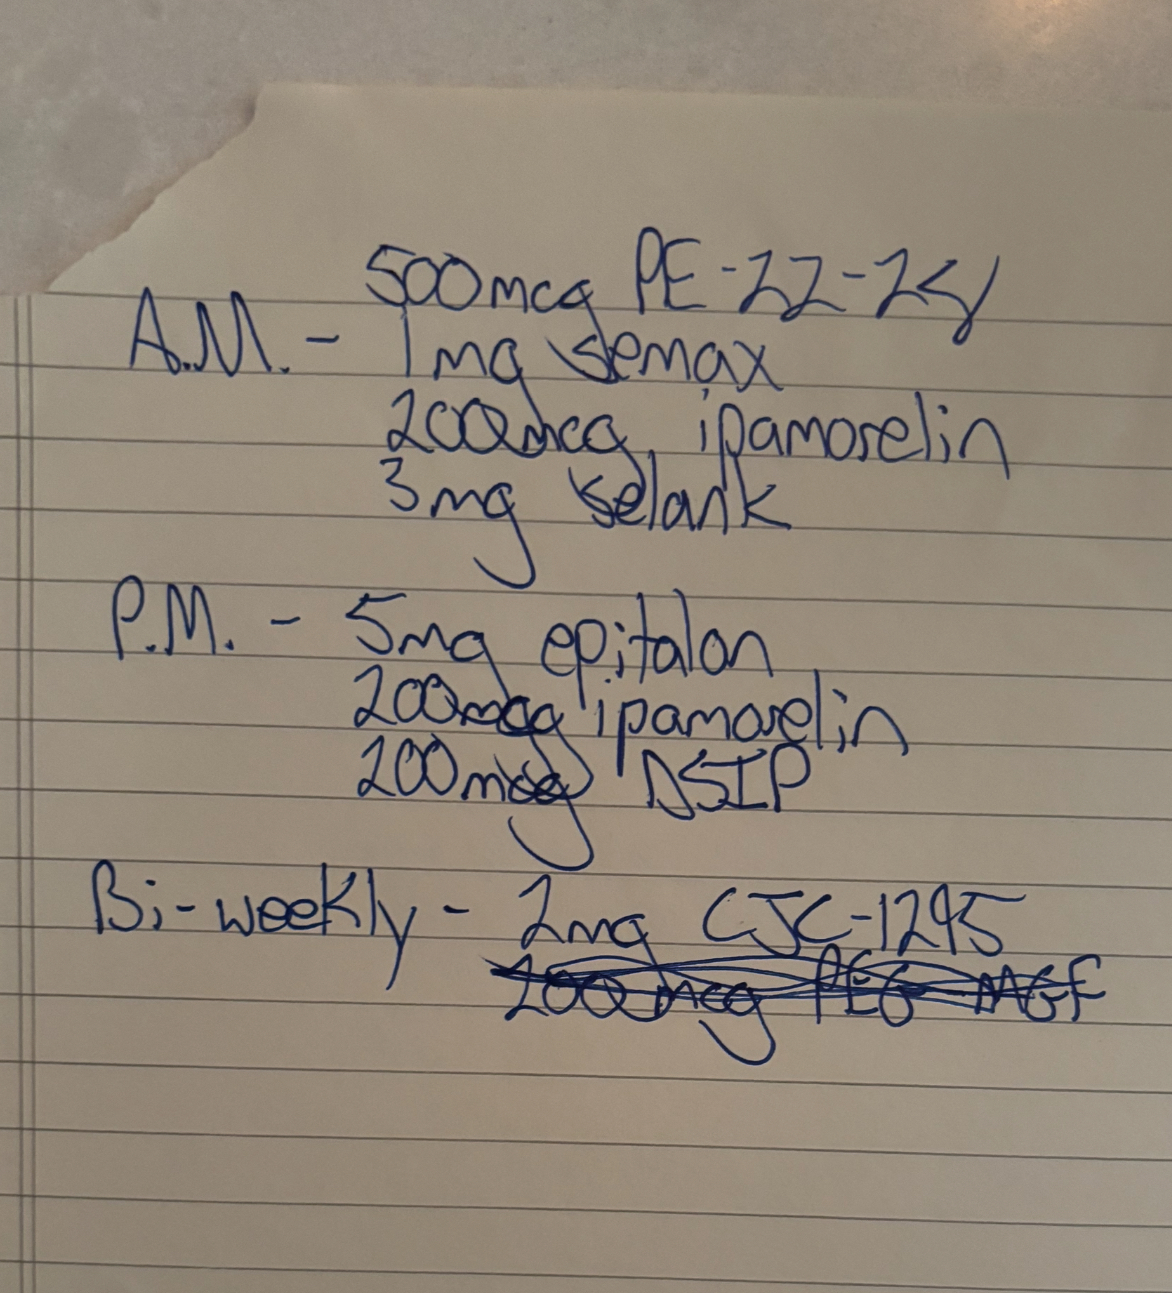 500mcg PE-22-28
A.M. - 1mg semax
200mcg ipamorelin
3mg selank
P.M. - 5mg epitalon
200mcg ipamorelin
200mcg DSIP
Bi-weekly - 2mg CJC-1295
200mcg PEG-MGF